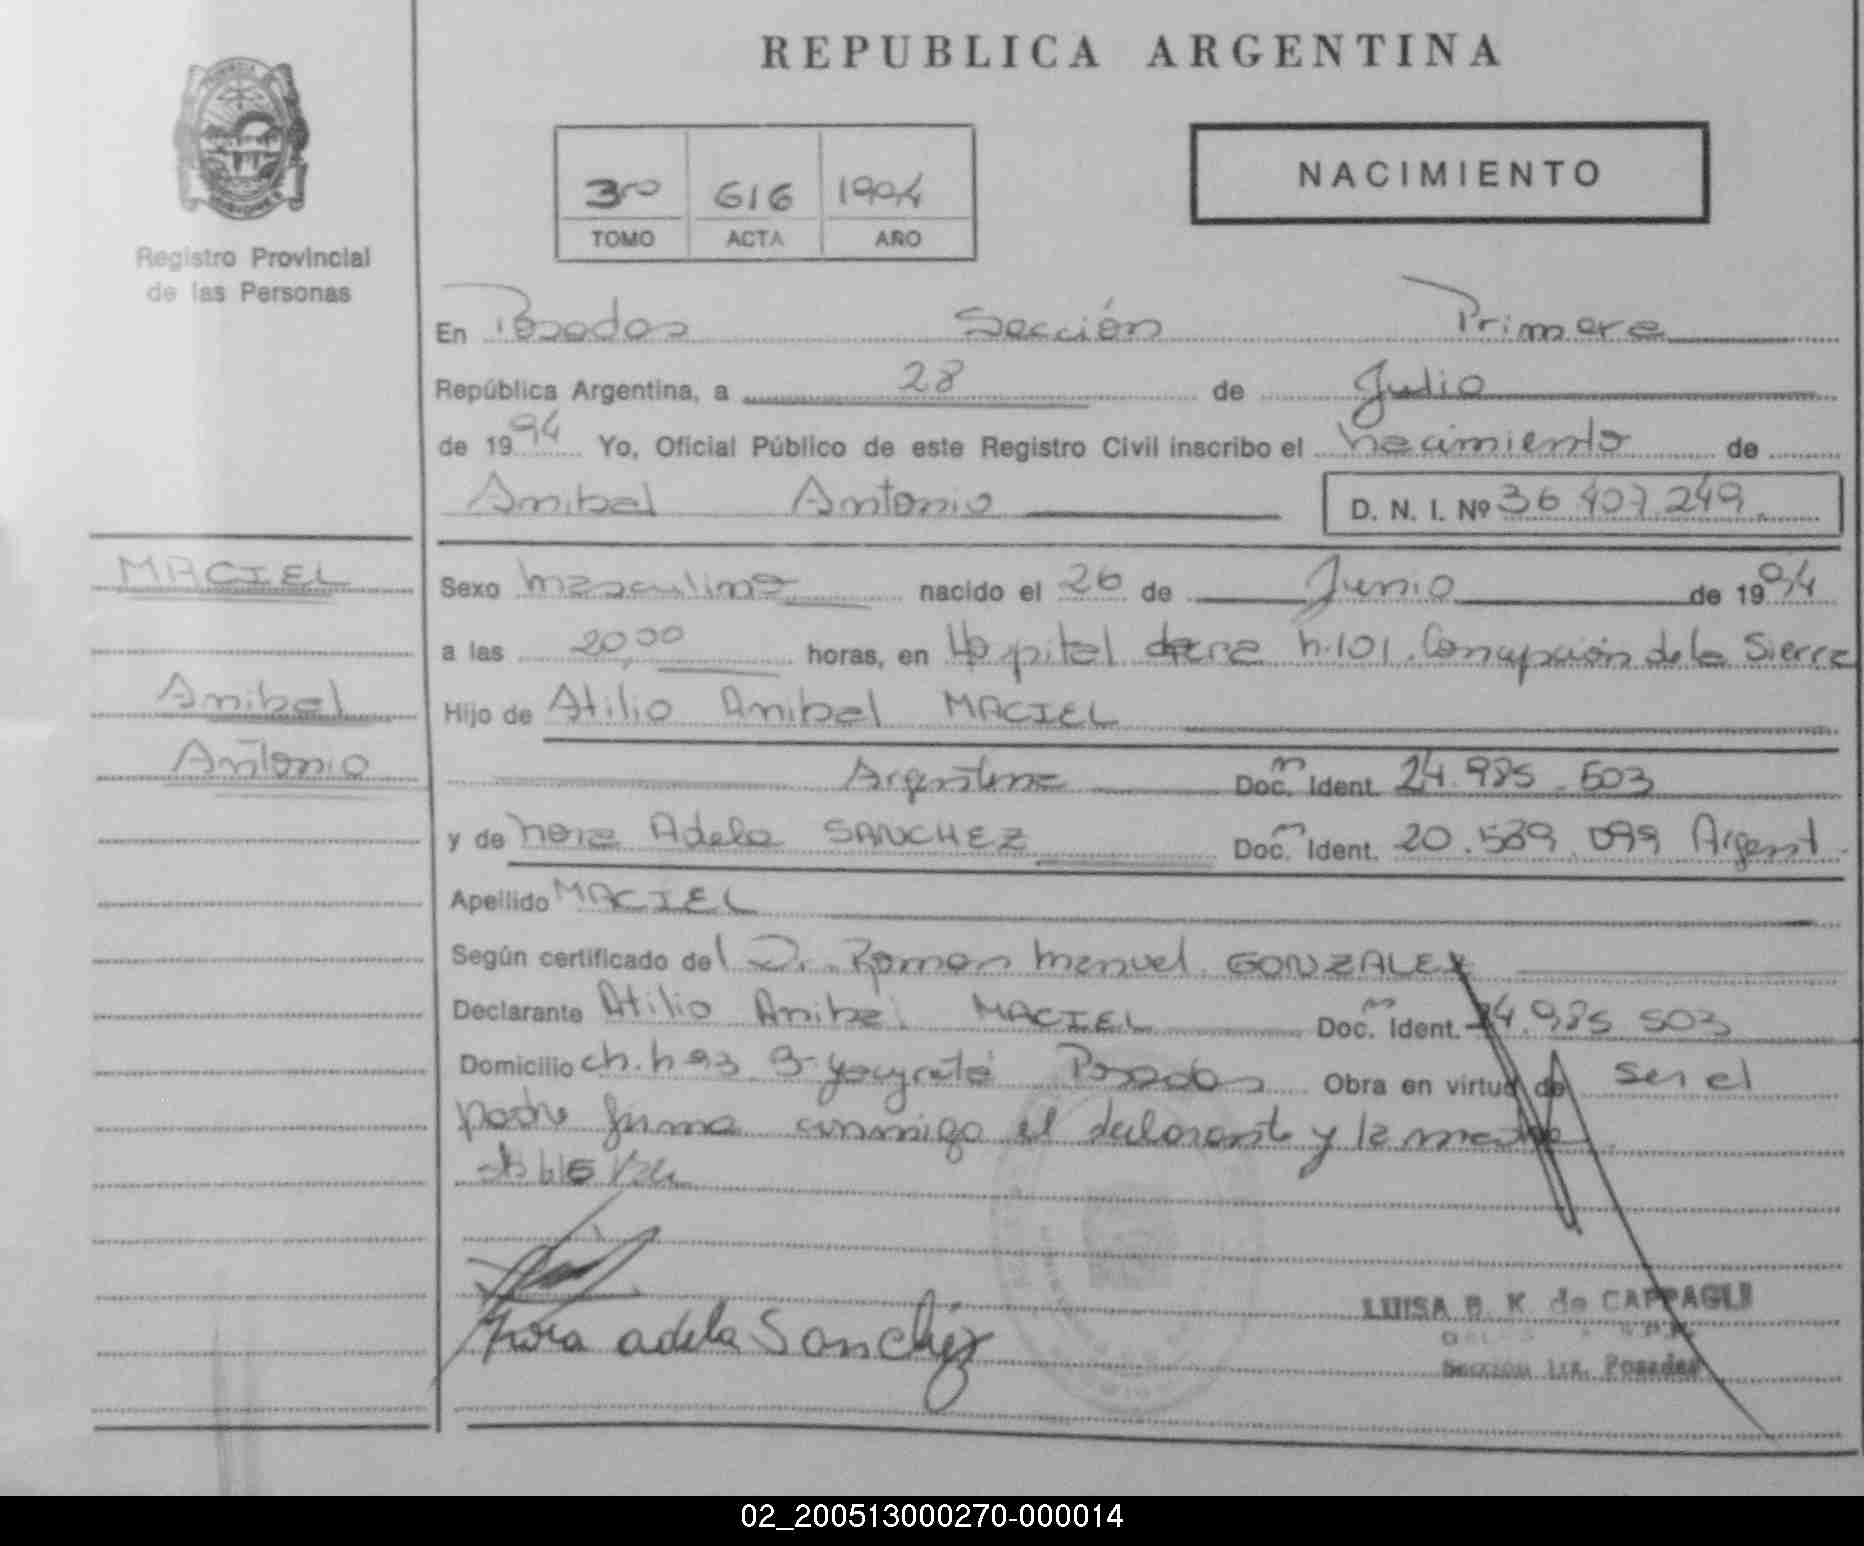 REPUBLICA ARGENTINA
Registro Provincial
de las Personas
3ro 616 1994
TOMO ACTA AÑO
NACIMIENTO
En Posadas Sección Primera
República Argentina, a 28 de Julio
de 1994 Yo, Oficial Público de este Registro Civil inscribo el nacimiento de
Anibal Antonio D. N. I. Nº 36 407 249
MACIEL
Anibal
Antonio
Sexo masculino nacido el 26 de Junio de 1994
a las 20,00 horas, en Hospital area n.101. Concepción de la Sierra
Hijo de Atilio Anibal MACIEL
Argentina Doc. m Ident. 24.985.503
y de nora Adela SANCHEZ Doc. m Ident. 20.589.099 Argent.
Apellido MACIEL
Según certificado del D. Ramon manuel GONZALEZ
Declarante Atilio Anibal MACIEL Doc. m Ident. 24.985 503
Domicilio ch. h 93 B- yacyretá Posadas Obra en virtud de ser el
padre firma conmigo el declarante y la madre
nora adela Sanchez
LUISA B. K. de CAPPAGLI
Sección 1ra. Posadas
02_200513000270-000014